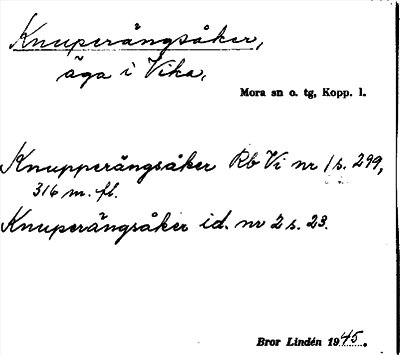 Knuperängsåker,
äga i Vika,
Mora sn o. tg, Kopp. l.
Knupperängsåker Rb Vi nr 1 s. 299,
316 m. fl.
Knuperängsåker id. nr 2 s. 23.
Bror Lindén 1945.